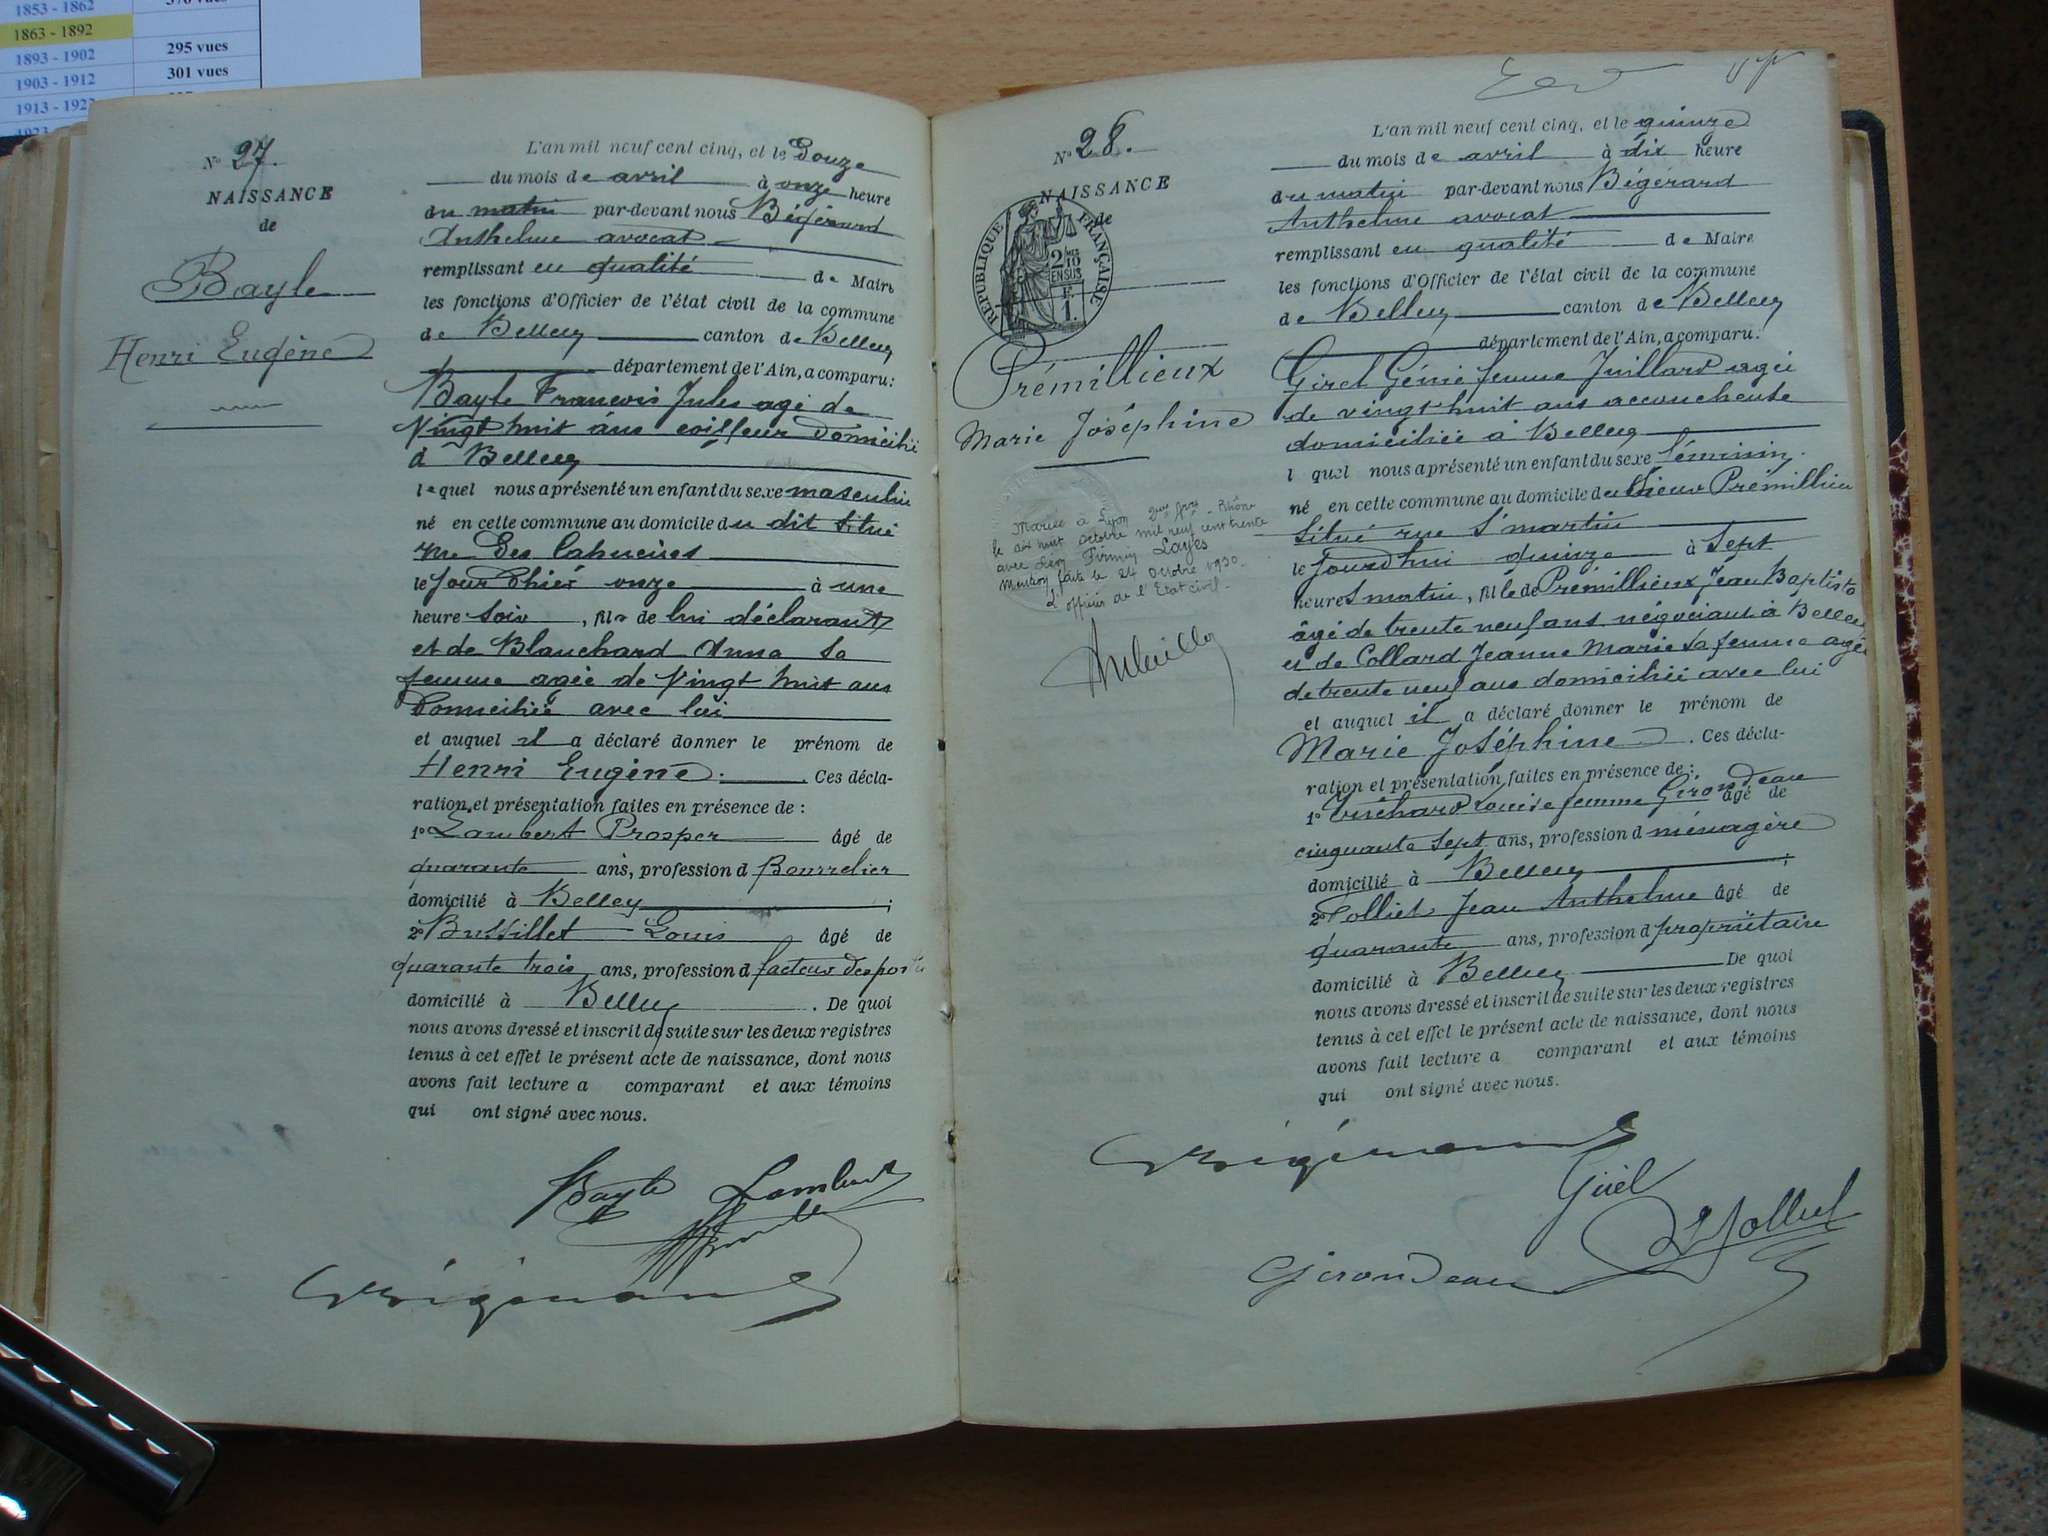 1853 - 1862
1863 - 1892
1893 - 1902 295 vues
1903 - 1912 301 vues
1913 - 1922
N° 27.
NAISSANCE
de
Bayle
Henri Eugène
L'an mil neuf cent cinq, et le Douze
du mois de avril à onze heure
du matin par-devant nous Bégérard
Anthelme avocat
remplissant en qualité de Maire
les fonctions d'Officier de l'état civil de la commune
de Belley canton de Belley
département de l'Ain, a comparu:
Bayle François Jules agé de
Vingt huit ans coiffeur Domicilié
à Belley
lequel nous a présenté un enfant du sexe masculin
né en cette commune au domicile du dit Situé
rue Des
le Jour D'hier onze à une
heure soir, fils de lui déclarant
et de Blanchard Anna Sa
femme agée de Vingt huit ans
Domiciliée avec lui
et auquel il a déclaré donner le prénom de
Henri Eugène. Ces décla-
ration et présentation faites en présence de :
1° Lambert Prosper âgé de
quarante ans, profession d Bourrelier
domicilié à Belley ;
2° Bussillet Louis âgé de
quarante trois ans, profession d facteur des postes
domicilié à Belley. De quoi
nous avons dressé et inscrit de suite sur les deux registres
tenus à cet effet le présent acte de naissance, dont nous
avons fait lecture a comparant et aux témoins
qui ont signé avec nous.
Bayle Lambert
Bégérard
N° 28.
NAISSANCE
de
RÉPUBLIQUE FRANÇAISE
2/10
EN SUS
F.
1.
Prémillieux
Marie Joséphine
Mariée à Lyon - Rhône
le dix huit octobre mil neuf cent trente
avec Léon Firmin Layes
Mention faite le 24 Octobre 1930.
L'officier de l'Etat civil.
L'an mil neuf cent cinq, et le quinze
du mois de avril à dix heure
du matin par-devant nous Bégérard
Anthelme avocat
remplissant en qualité de Maire
les fonctions d'Officier de l'état civil de la commune
de Belley canton de Belley
département de l'Ain, a comparu:
Girel Génie femme Juillard agée
de vingt huit ans accoucheuse
domiciliée à Belley
l quel nous a présenté un enfant du sexe féminin.
né en cette commune au domicile de Prémillieu
Situé rue St martin
le Jourd'hui quinze à Sept
heures matin, fille de Prémillieux Jean Baptiste
âgé de trente neuf ans négociant à Belley
et de Collard Jeanne Marie Sa femme agée
de trente neuf ans domiciliée avec lui
et auquel il a déclaré donner le prénom de
Marie Joséphine. Ces décla-
ration et présentation, faites en présence de :
1° Louise femme Girondeau âgé de
cinquante Sept ans, profession d ménagère
domicilié à Belley ;
2° Jolliet Jean Anthelme âgé de
quarante ans, profession d propriétaire
domicilié à Belley De quoi
nous avons dressé et inscrit de suite sur les deux registres
tenus à cet effet le présent acte de naissance, dont nous
avons fait lecture a comparant et aux témoins
qui ont signé avec nous.
Bégérard
Girel
Jolliet
Girondeau